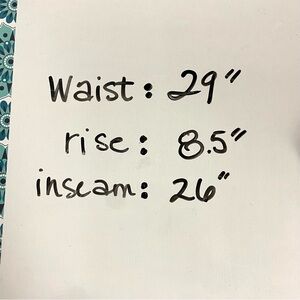 Waist: 29"
rise: 8.5"
inseam: 26"